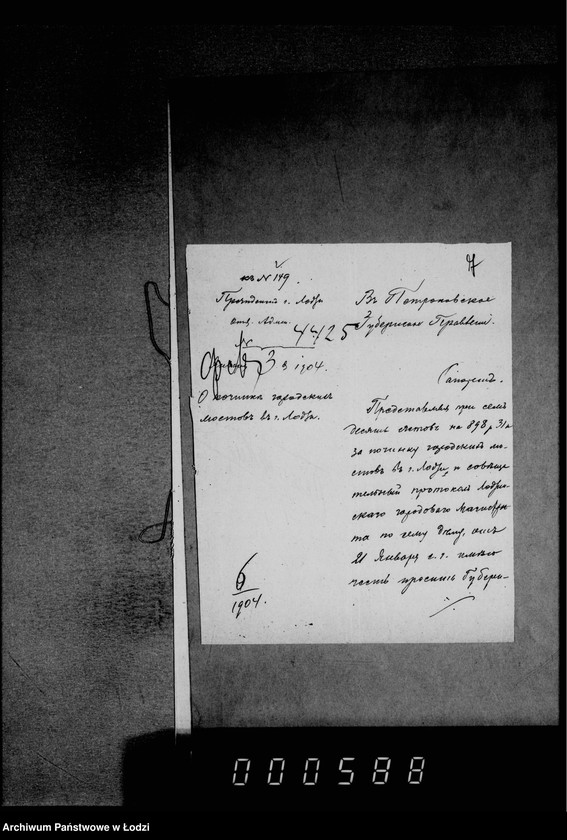 къ № 149.
Президентъ г. Лодзи
отд. Админ.
№ 4425
3 1904.
О починкѣ городскихъ
мостовъ въ г. Лодзи.
6
1904.
7
Въ Петроковское
Губернское Правленіе.
Рапортъ.
Представляя при семъ
десять счетовъ на 898 р. 31 к.
за починку городскихъ мо-
стовъ въ г. Лодзи, и совѣща-
тельный протоколъ Лодзин-
скаго городового Магистра-
та по сему дѣлу, отъ
21 Января с. г. имѣю
честь просить Губерн-
000588
Archiwum Państwowe w Łodzi